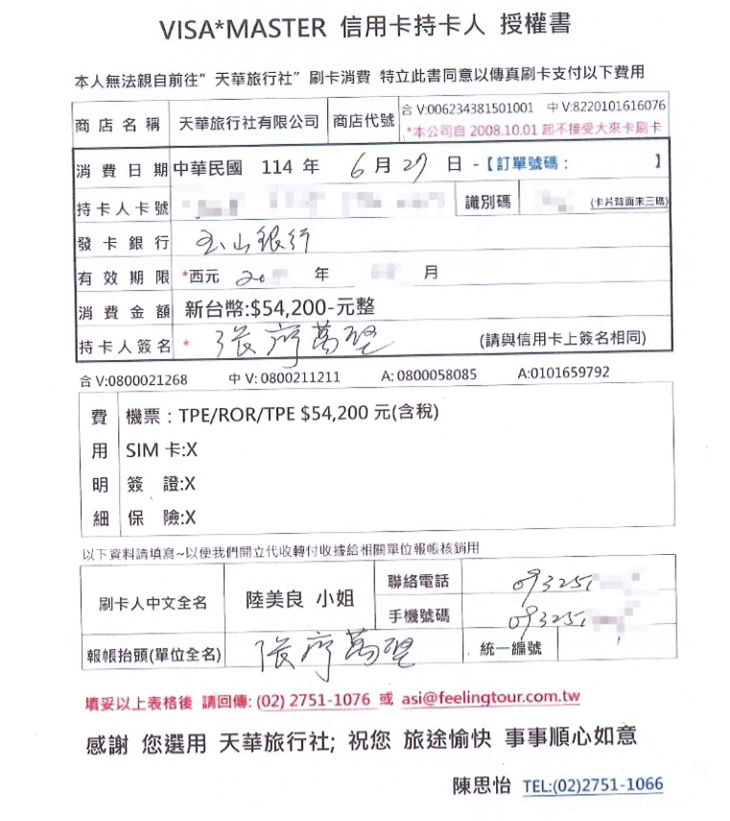 VISA*MASTER 信用卡持卡人 授權書
本人無法親自前往” 天華旅行社” 刷卡消費 特立此書同意以傳真刷卡支付以下費用
商店名稱 天華旅行社有限公司 商店代號 合 V:006234381501001 中 V:8220101616076
*本公司自 2008.10.01 起不接受大來卡刷卡
消費日期 中華民國 114 年 6 月 27 日 -【訂單號碼: 】
持卡人卡號 * 識別碼 (卡片背面末三碼)
發卡銀行 玉山銀行
有效期限 *西元 20 年 月
消費金額 新台幣:$54,200-元整
持卡人簽名 * 張齊萬 (請與信用卡上簽名相同)
合 V:0800021268 中 V: 0800211211 A: 0800058085 A:0101659792
費 機票：TPE/ROR/TPE $54,200 元(含稅)
用 SIM 卡:X
明 簽 證:X
細 保 險:X
以下資料請填寫~以便我們開立代收轉付收據給相關單位報帳核銷用
刷卡人中文全名 陸美良 小姐 聯絡電話 093251
手機號碼 093251
報帳抬頭(單位全名) 張齊萬 統一編號
填妥以上表格後 請回傳: (02) 2751-1076 或 asi@feelingtour.com.tw
感謝 您選用 天華旅行社; 祝您 旅途愉快 事事順心如意
陳思怡 TEL:(02)2751-1066